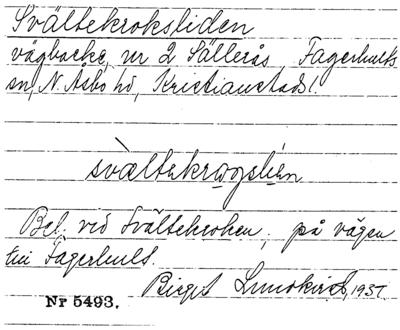 Svältekroksliden
vägbacke, nr 2 Sällerås, Fagerhults
sn, N. Åsbo hd, Kristianstads l.
svàltekrωgslíen
Bel. vid Svältekroken, på vägen
till Fagerhult.
Birgit 1937
Nr 5493.